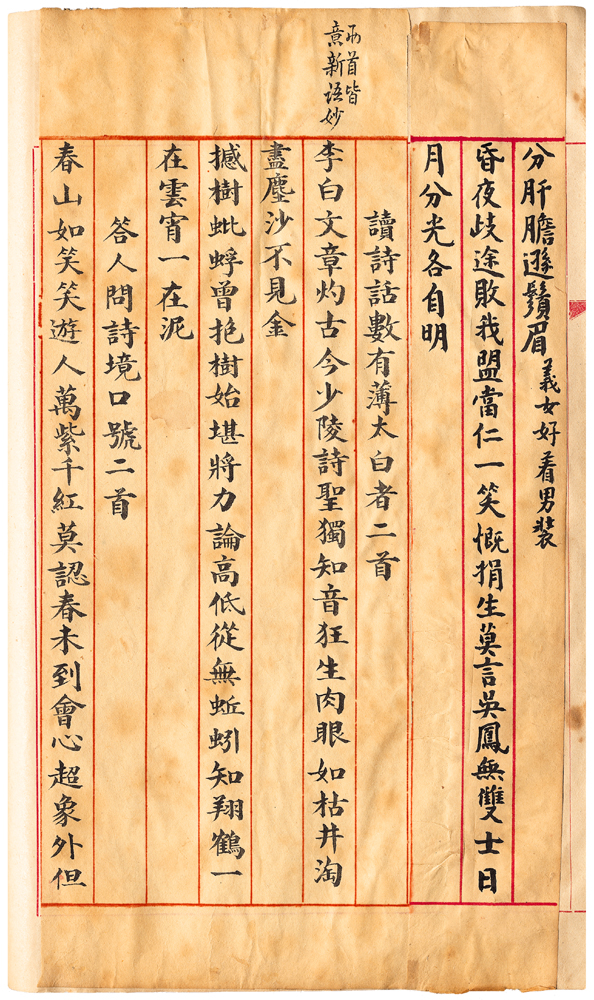 分肝膽遜鬚眉 義女好看男裝
昏夜歧途敗我盟當仁一笑慨捐生莫言吳鳳無雙士日
月分光各自明
兩首皆
意新語妙
讀詩話數有薄太白者二首
李白文章灼古今少陵詩聖獨知音狂生肉眼如枯井淘
盡塵沙不見金
撼樹蚍蜉曾抱樹始堪將力論高低從無蚯蚓知翔鶴一
在雲宵一在泥
答人問詩境口號二首
春山如笑笑遊人萬紫千紅莫認春未到會心超象外但